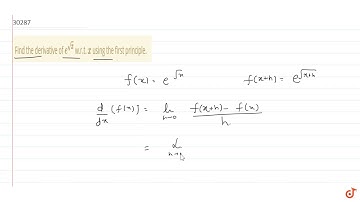 30287
Find the derivative of e^{√x} w.r.t. x using the first principle.
f(x) = e^{√x} f(x+h) = e^{√x+h}
d/dx (f(x)) = lim_{h→0} f(x+h) - f(x) / h
= lim_{h→0}